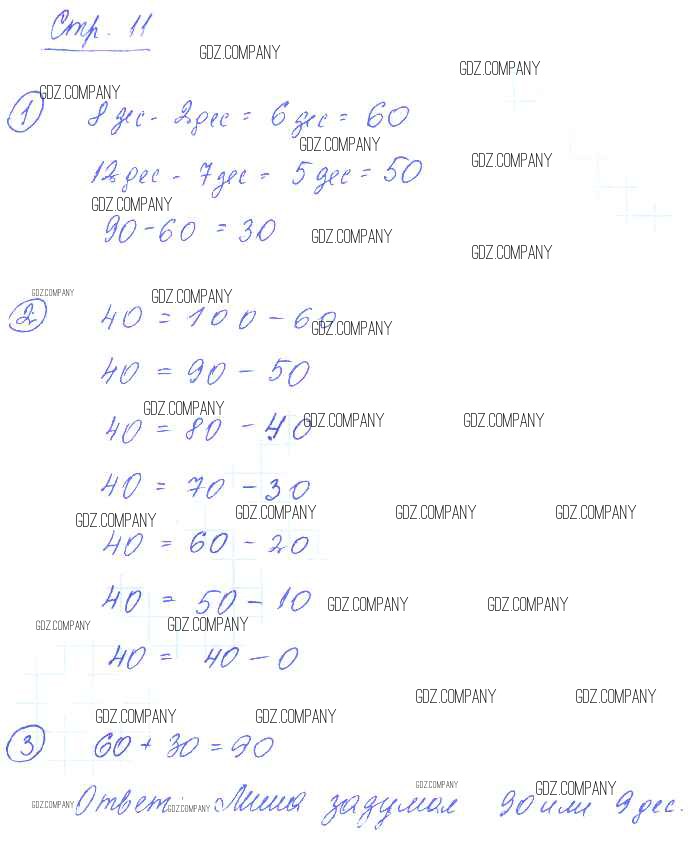 Стр. 11
GDZ.COMPANY
GDZ.COMPANY
GDZ.COMPANY
1 8 дес - 2 дес = 6 дес = 60
GDZ.COMPANY
GDZ.COMPANY
12 дес - 7 дес = 5 дес = 50
GDZ.COMPANY
90 - 60 = 30
GDZ.COMPANY
GDZ.COMPANY
GDZ.COMPANY
GDZ.COMPANY
2 40 = 100 - 60
GDZ.COMPANY
40 = 90 - 50
GDZ.COMPANY
GDZ.COMPANY
GDZ.COMPANY
40 = 80 - 40
40 = 70 - 30
GDZ.COMPANY
GDZ.COMPANY
GDZ.COMPANY
GDZ.COMPANY
40 = 60 - 20
40 = 50 - 10
GDZ.COMPANY
GDZ.COMPANY
GDZ.COMPANY
GDZ.COMPANY
40 = 40 - 0
GDZ.COMPANY
GDZ.COMPANY
GDZ.COMPANY
GDZ.COMPANY
3 60 + 30 = 90
GDZ.COMPANY
GDZ.COMPANY
GDZ.COMPANY
GDZ.COMPANY
Ответ: Миша задумал 90 или 9 дес.